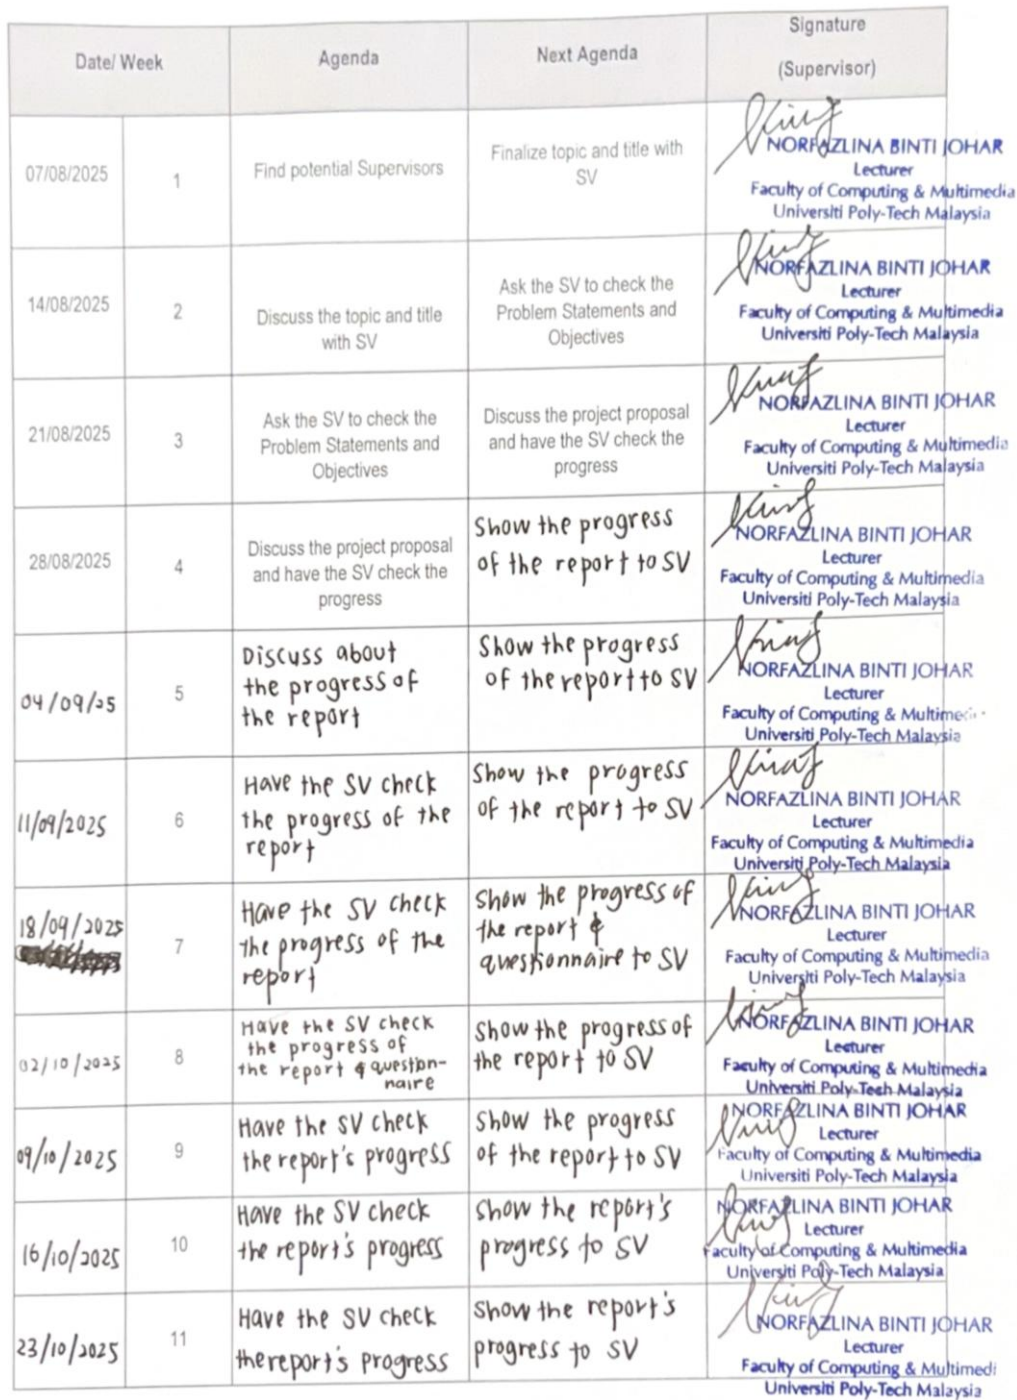 Date/ Week
Agenda
Next Agenda
Signature
(Supervisor)
07/08/2025
1
Find potential Supervisors
Finalize topic and title with
SV
NORFAZLINA BINTI JOHAR
Lecturer
Faculty of Computing & Multimedia
Universiti Poly-Tech Malaysia
14/08/2025
2
Discuss the topic and title
with SV
Ask the SV to check the
Problem Statements and
Objectives
NORFAZLINA BINTI JOHAR
Lecturer
Faculty of Computing & Multimedia
Universiti Poly-Tech Malaysia
21/08/2025
3
Ask the SV to check the
Problem Statements and
Objectives
Discuss the project proposal
and have the SV check the
progress
NORFAZLINA BINTI JOHAR
Lecturer
Faculty of Computing & Multimedia
Universiti Poly-Tech Malaysia
28/08/2025
4
Discuss the project proposal
and have the SV check the
progress
Show the progress
of the report to SV
NORFAZLINA BINTI JOHAR
Lecturer
Faculty of Computing & Multimedia
Universiti Poly-Tech Malaysia
04/09/25
5
Discuss about
the progress of
the report
Show the progress
of the report to SV
NORFAZLINA BINTI JOHAR
Lecturer
Faculty of Computing & Multime
Universiti Poly-Tech Malaysia
11/09/2025
6
Have the SV check
the progress of the
report
Show the progress
of the report to SV
NORFAZLINA BINTI JOHAR
Lecturer
Faculty of Computing & Multimedia
Universiti Poly-Tech Malaysia
18/09/2025
7
Have the SV check
the progress of the
report
Show the progress of
the report &
questionnaire to SV
NORFAZLINA BINTI JOHAR
Lecturer
Faculty of Computing & Multimedia
Universiti Poly-Tech Malaysia
02/10/2025
8
Have the SV check
the progress of
the report & question-
naire
Show the progress of
the report to SV
NORFAZLINA BINTI JOHAR
Lecturer
Faculty of Computing & Multimedia
Universiti Poly-Tech Malaysia
09/10/2025
9
Have the SV check
the report's progress
Show the progress
of the report to SV
NORFAZLINA BINTI JOHAR
Lecturer
Faculty of Computing & Multimedia
Universiti Poly-Tech Malaysia
16/10/2025
10
Have the SV check
the report's progress
Show the report's
progress to SV
NORFAZLINA BINTI JOHAR
Lecturer
Faculty of Computing & Multimedia
Universiti Poly-Tech Malaysia
23/10/2025
11
Have the SV check
the report's progress
Show the report's
progress to SV
NORFAZLINA BINTI JOHAR
Lecturer
Faculty of Computing & Multimedi
Universiti Poly-Tech Malaysia